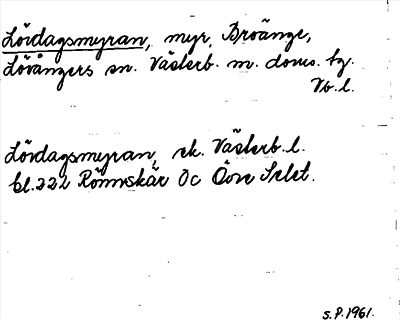 Lördagsmyran, myr, Broänge,
Lövångers sn. Västerb. m. doms. bg.
Vb. l.
Lördagsmyran, ek. Västerb. l.
bl. 222 Rönnskär Oc Övre Selet.
S.P. 1961.